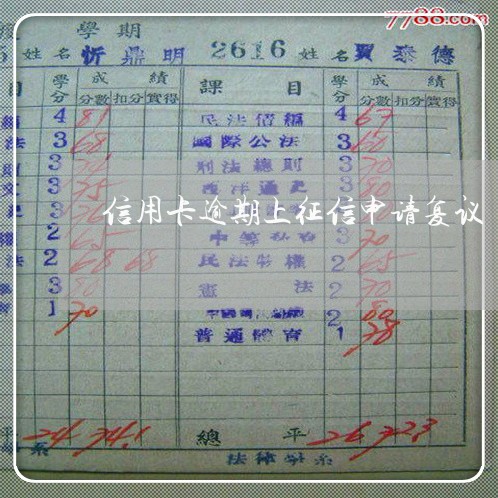 7788.com
學期
姓名 忻鼎明 2616 姓名 賈泰德
目 學分 成績 課目 學分 成績
分數 扣分 實得 分數 扣分 實得
4 81 民法債編 4 67
法 3 68 國際公法 3 60
3 刑法總則 3 70
文 3 75 西洋通史 3 80
信用卡逾期上征信申请复议
2 65 3 70
法 2 68 68 民法物權 2 65
3 80 憲法 2 70
1 70 2 80
普通體育 1 78
平 24 74.1 總平 26 72.3
系 法律學系